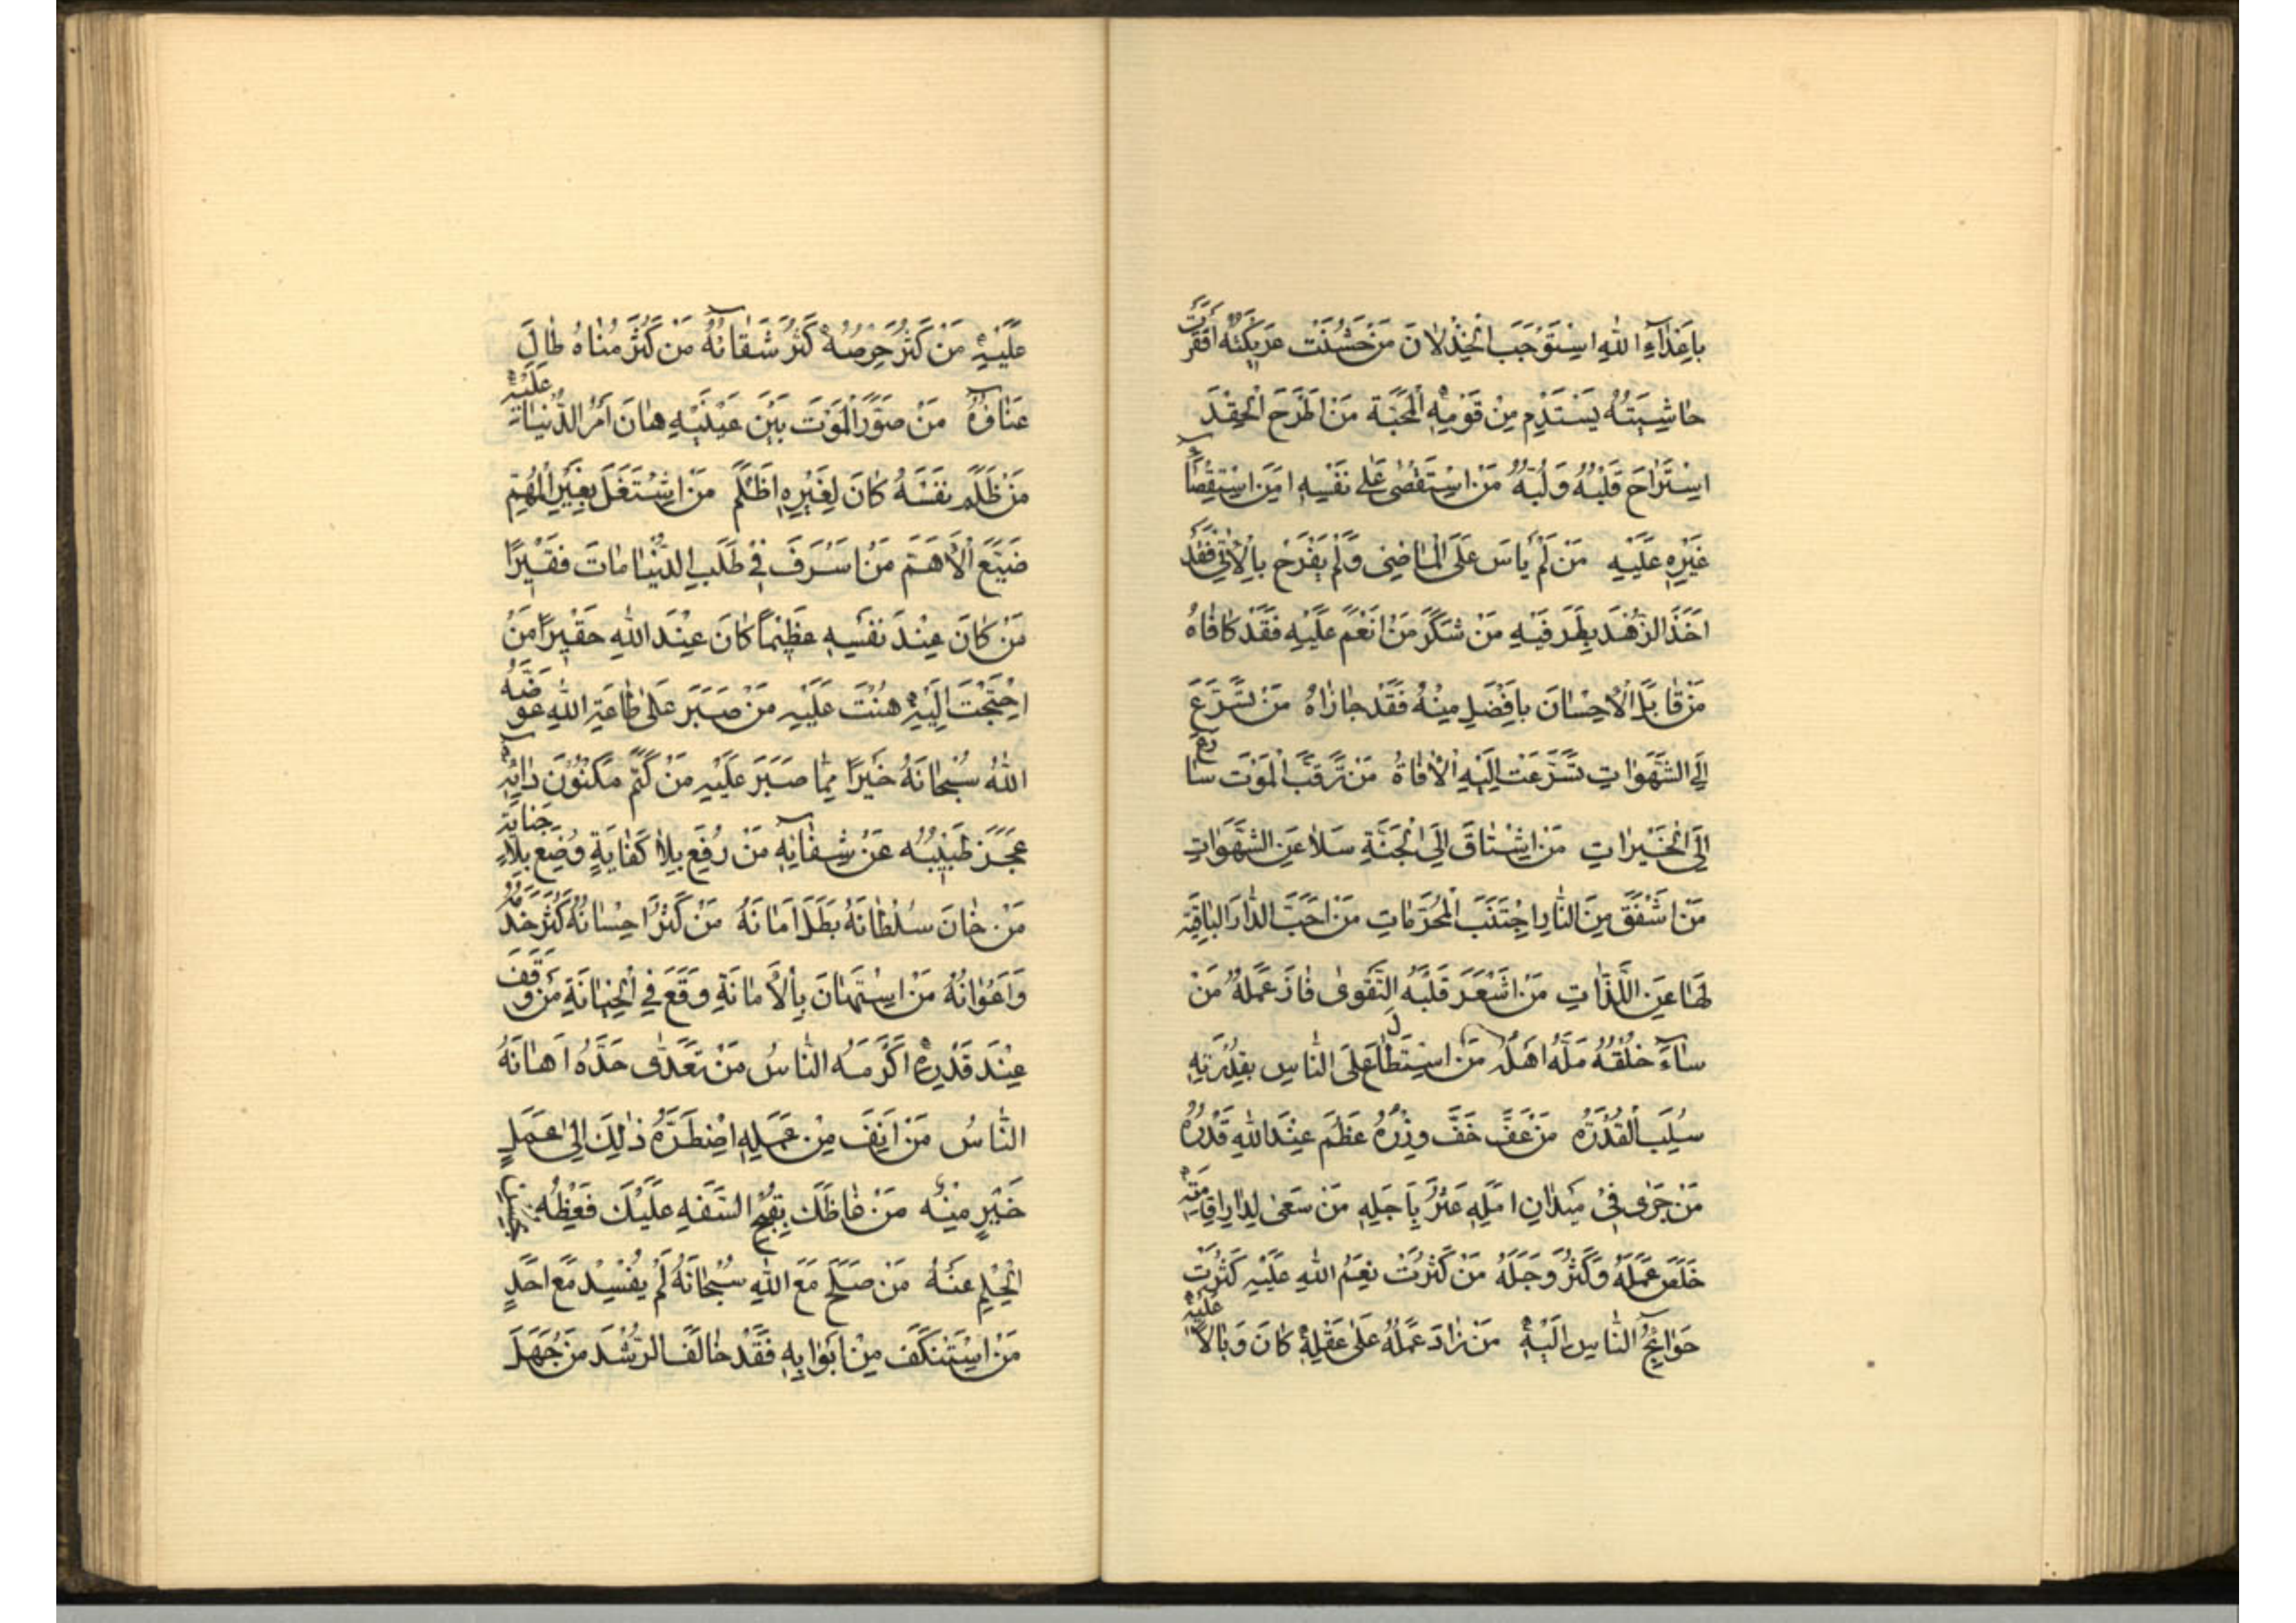 باعداء الله استوجب الخذلان من خشنت عريكته اقفرت
حاشيته يستدم من قومه المحبة من اطرح الحقد
استراح قلبه ولبه من استقصى على نفسه امن استقصاء
غيره عليه من لم ياس على الماضى ولم يفرح بالاتى فقد
اخذ الزهد بطرفيه من شكر من انعم عليه فقد كافاه
من قابل الاحسان بافضل منه فقد جازاه من تسرع
الى الشهوات تسرعت اليه الافاة من ترقب الموت سارع
الى الخيرات من اشتاق الى الجنة سلا عن الشهوات
من اشفق من النار اجتنب المحرمات من احب الدار الباقية
لها عن اللذات من اشعر قلبه التقوى فاز عمله من
ساء خلقه مله اهله من استطال على الناس بقدرته
سلب القدرة من عف خف وزره عظم عند الله قدره
من جرى فى ميدان امله عثر باجله من سعى لدار اقامته
خلص عمله وكثر وجله من كثرت نعم الله عليه كثرت
حوائج الناس اليه من زاد عمله على عقله كان وبالا عليه
عليه من كثر حرصه كثر شقائه من كثر مناه طال
عنافه من صور الموت بين عينيه هان امر الدنيا عليه
من ظلم نفسه كان لغيره اظلم من اشتغل بغير المهم
ضيع الاهم من اسرف فى طلب الدنيا مات فقيرا
من كان عند نفسه عظيما كان عند الله حقيرا من
احتجت اليه هنت عليه من صبر على طاعة الله عوضه
الله سبحانه خيرا مما صبر عليه من كتم مكنون دائه
عجز طبيبه عن شفائه من رفع بلا كفاية وضع بلا جناية
من خان سلطانه بطل امانه من كثر احسانه كثر خدمه
واعوانه من استهان بالامانة وقع فى الخيانة من وقف
عند قدره اكرمه الناس من تعدى حده اهانه
الناس من انف من عمله اضطره ذلك الى عمل
خير منه من غاظك بقبح السفه عليك فغظه
الحلم عنه من صلح مع الله سبحانه لم يفسد مع احد
من استنكف من ابوابه فقد خالف الرشد من جهل